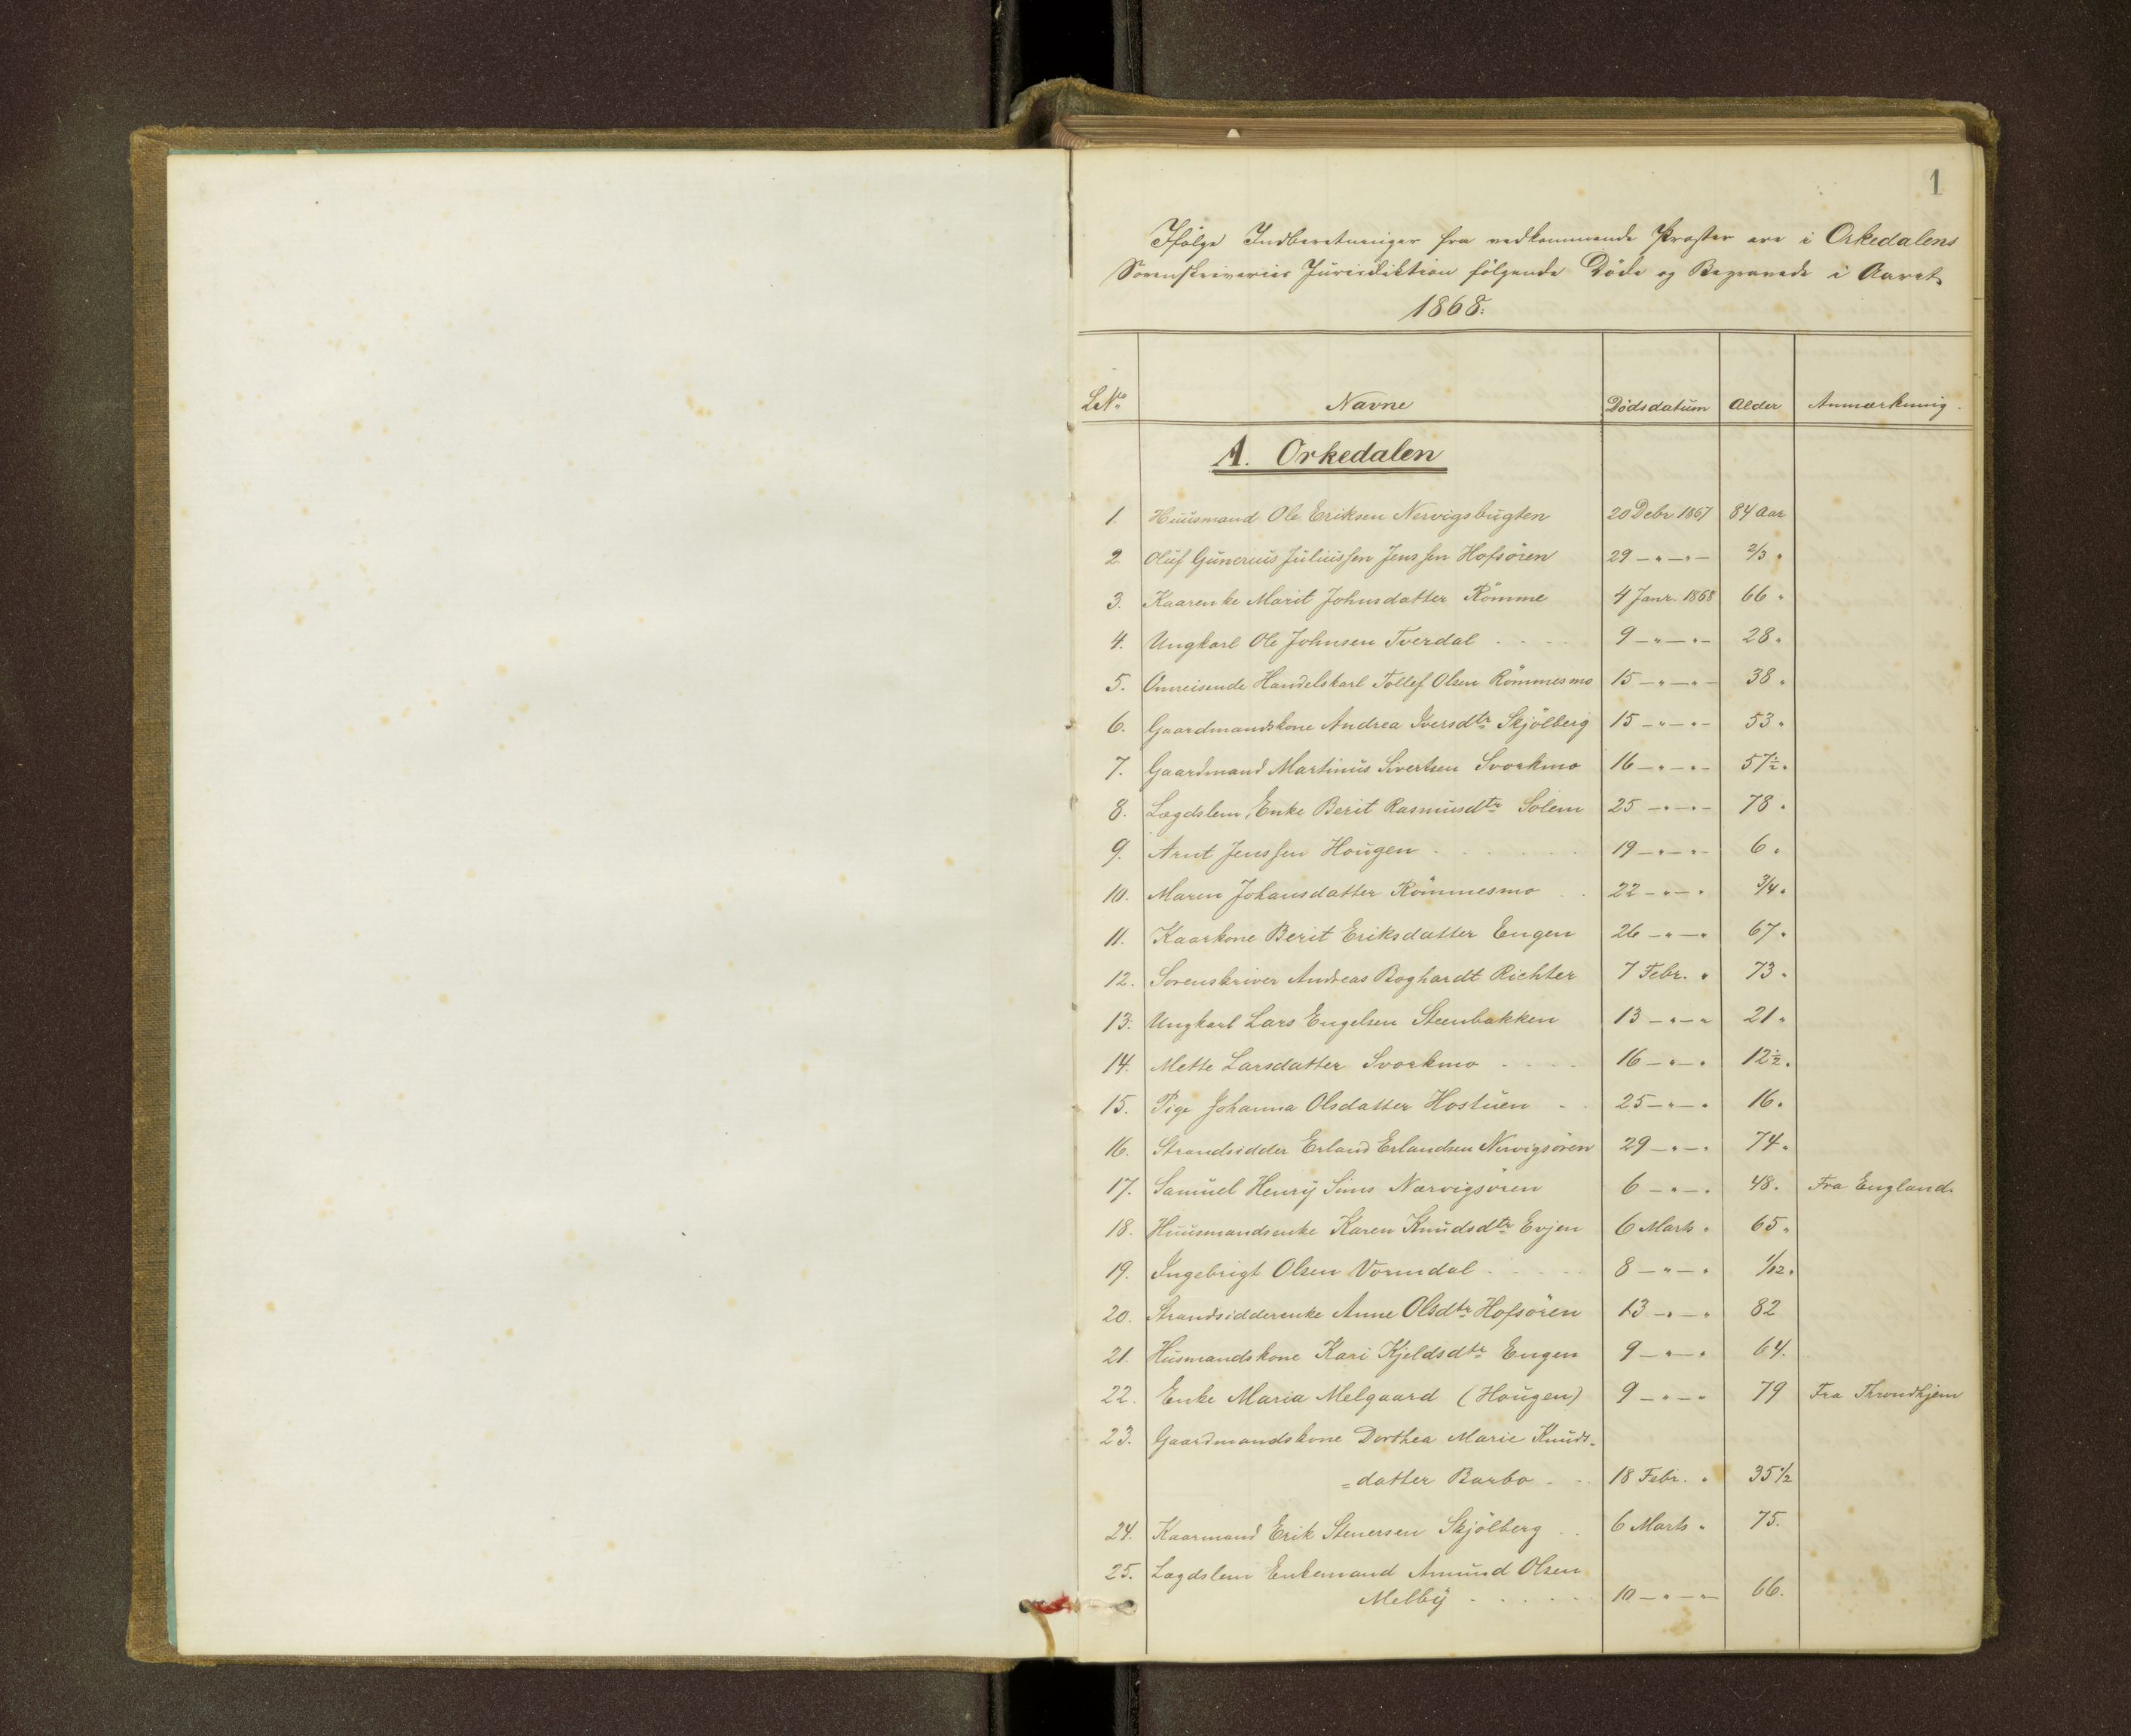 1
Ifølge Indberetninger fra vedkommende Præster ere i Orkedalens
Sorenskriveries Jurisdiktion følgende Døde og Begravede i Aaret
1868:
L.No. Navne Dødsdatum Alder Anmærkning.
A. Orkedalen
1. Huusmand Ole Eriksen Nervigsbugten 20 Debr 1867 84 Aar
2. Oluf Gunerius Juliussen Jenssen Hofsøren 29 – " – " – 2/3 "
3. Kaarenke Marit Johnsdatter Rømme 4 Janr. 1868 66 "
4. Ungkarl Ole Johnsen Tverdal 9 – " – " – 28 "
5. Omreisende Handelskarl Tollef Olsen Rømmesmo 15 – " – " – 38 "
6. Gaardmandskone Andrea Iversdtr Skjølberg 15 – " – " – 53 "
7. Gaardmand Martinus Sivertsen Svorkmo 16 – " – " – 57½ "
8. Lægdslem, Enke Berit Rasmusdtr Solem 25 – " – " – 78 "
9. Arnt Jenssen Hougen 19 – " – " – 6 "
10. Maren Johansdatter Rømmesmo 22 – " – " 3/4 "
11. Kaarkone Berit Eriksdatter Engen 26 – " – " 67 "
12. Sorenskriver Andreas Boghardt Richter 7 Febr. " 73 "
13. Ungkarl Lars Engelsen Steenbakken 13 – " – " 21 "
14. Mette Larsdatter Svorkmo 16 – " – " 12½ "
15. Pige Johanna Olsdatter Hostuen 25 – " – " 16 "
16. Strandsidder Erland Erlandsen Nervigsøren 29 – " – " 74 "
17. Samuel Henry Sims Nærvigsøren 6 – " – " 48 " Fra England.
18. Huusmandsenke Karen Knudsdtr Evjen 6 Marts " 65 "
19. Ingebrigt Olsen Vormdal 8 – " – " 1/12 "
20. Strandsidderenke Anne Olsdtr Hofsøren 13 – " – " 82
21. Husmandskone Kari Kjeldsdtr Engen 9 – " – " 64.
22. Enke Maria Melgaard (Hougen) 9 – " – " 79 Fra Throndhjem
23. Gaardmandskone Dorthea Marie Knuds-
=datter Barbo 18 Febr. " 35½
24. Kaarmand Erik Stenersen Skjølberg 6 Marts " 75.
25. Lægdslem Enkemand Amund Olsen
Melby 10 – " – " – 66.